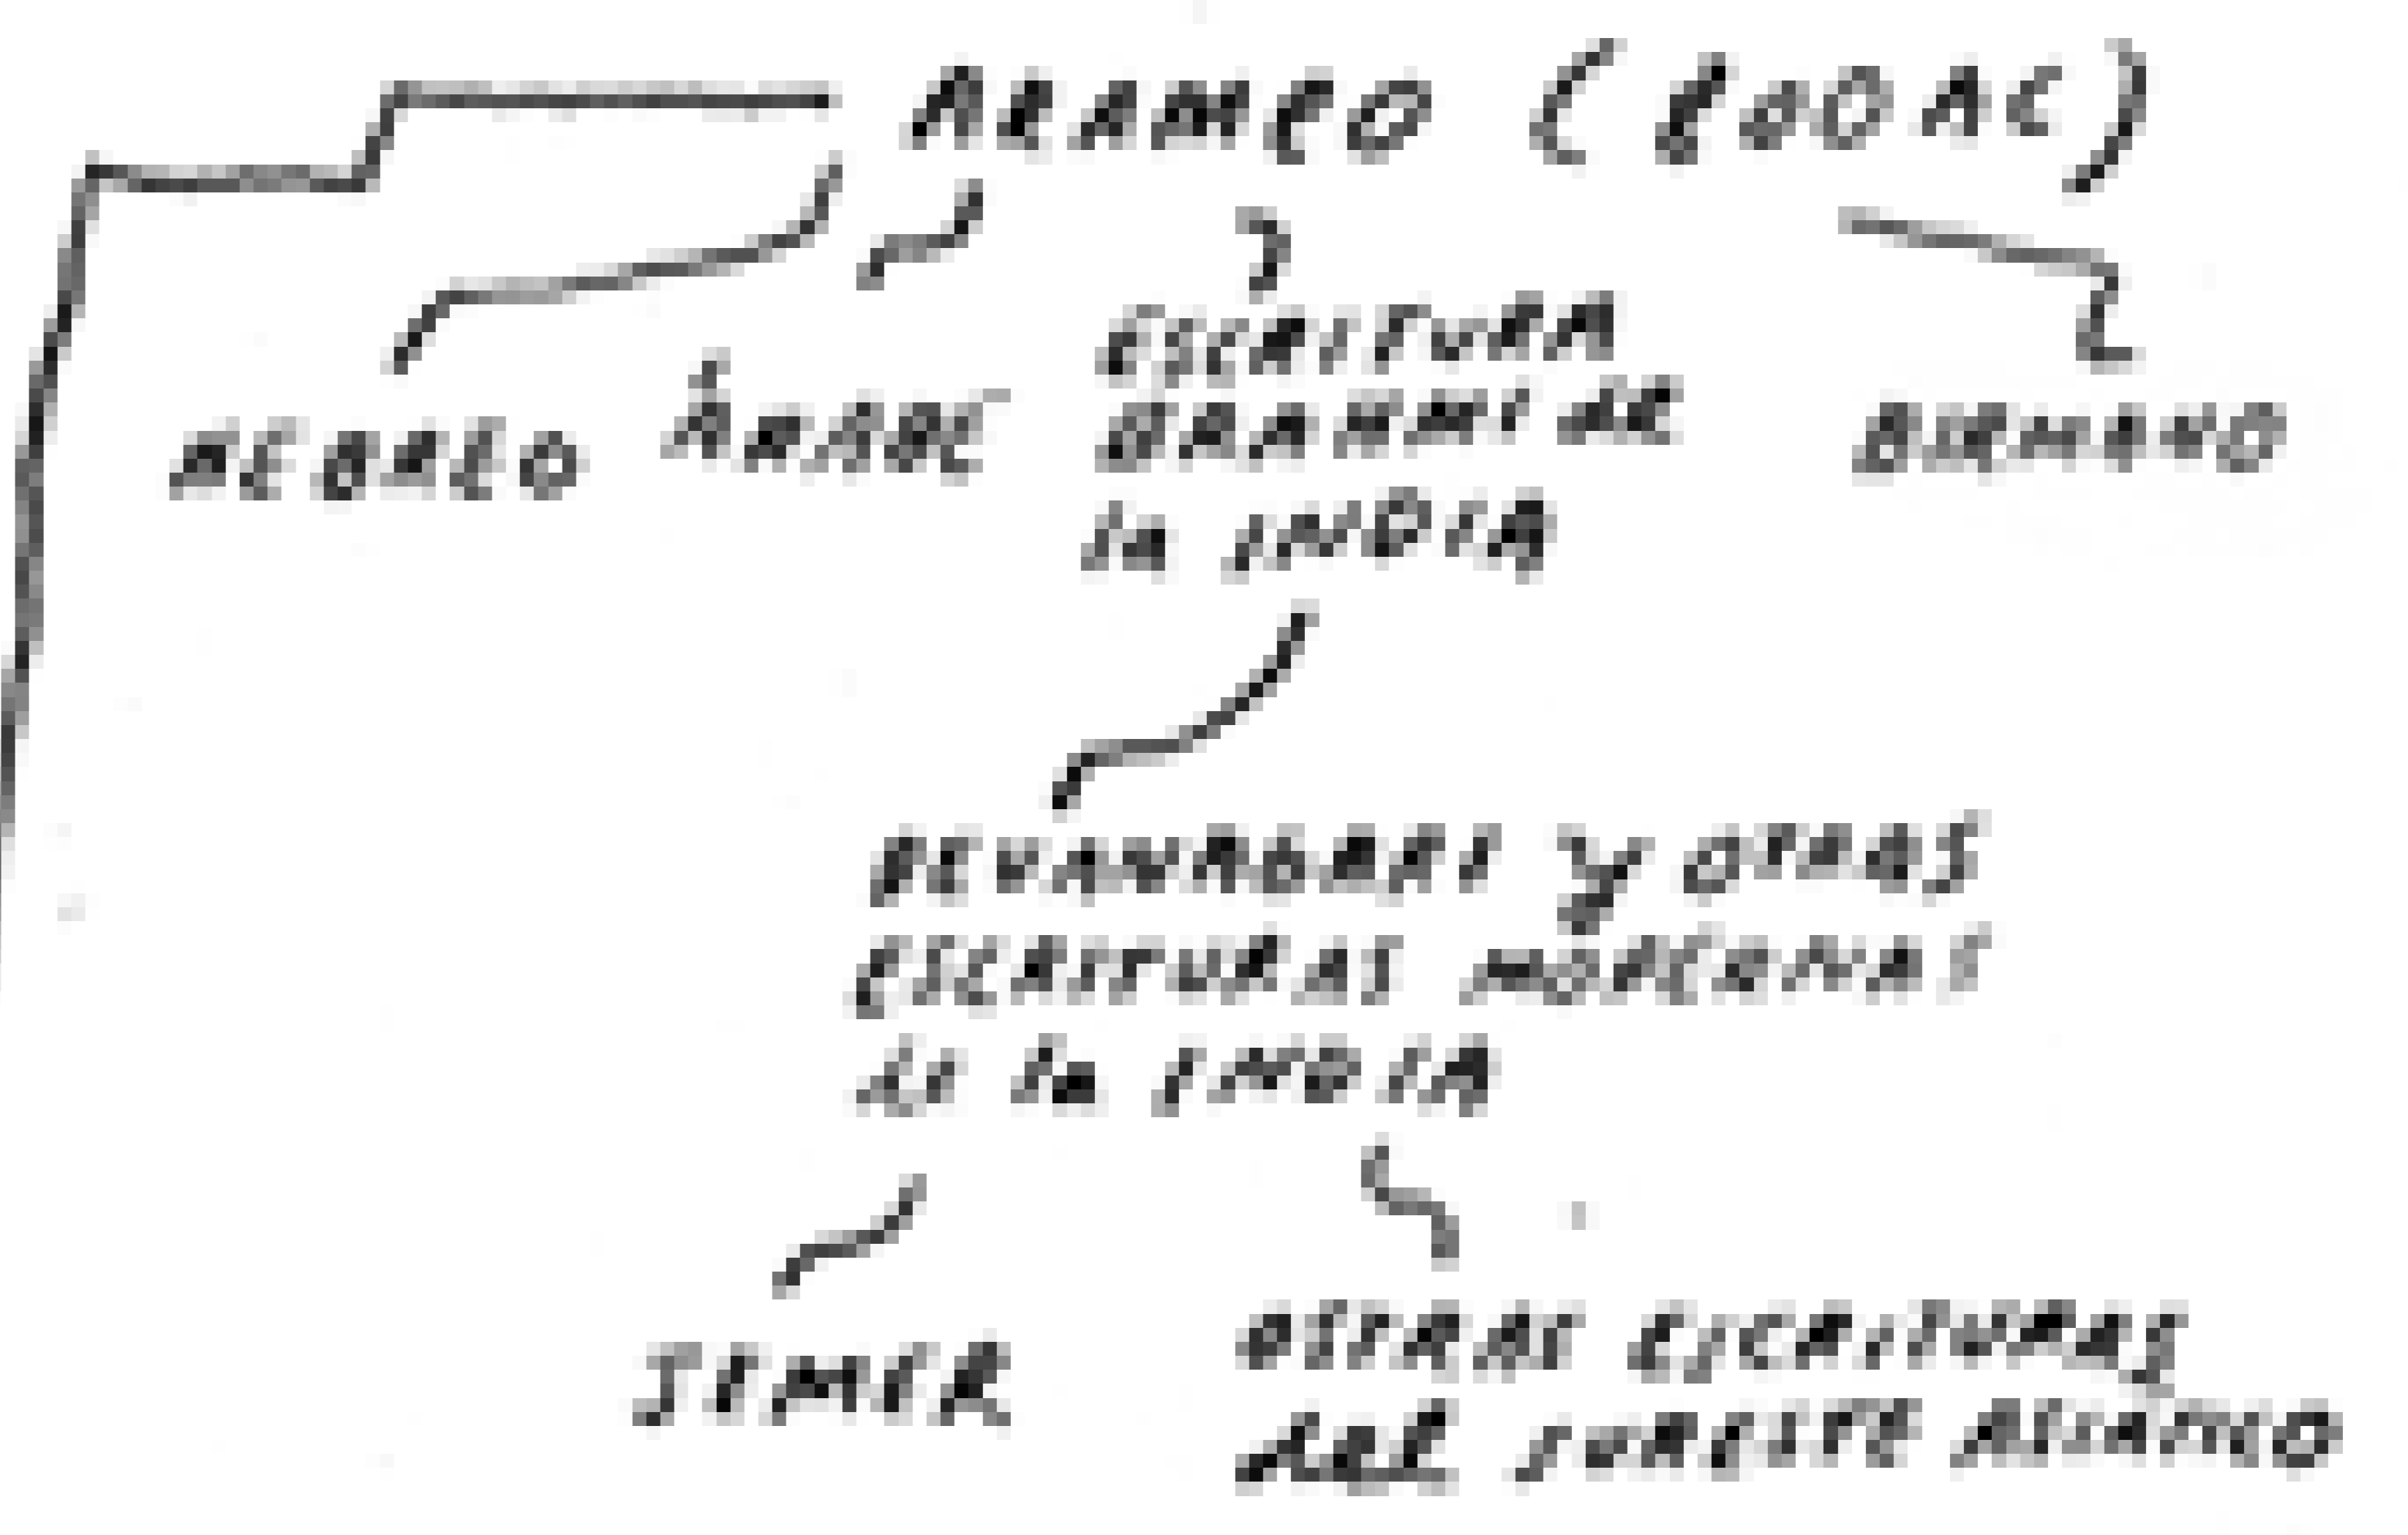 ARAMEO (800 AC)
HEBREO ÁRABE
ESCRITURA
BRAHMI de
la INDIA
BIRMANO
DEVANAGARI y OTRAS
ESCRITURAS MODERNAS
de la INDIA
JEMER
OTRAS ESCRITURAS
del SURESTE ASIÁTICO